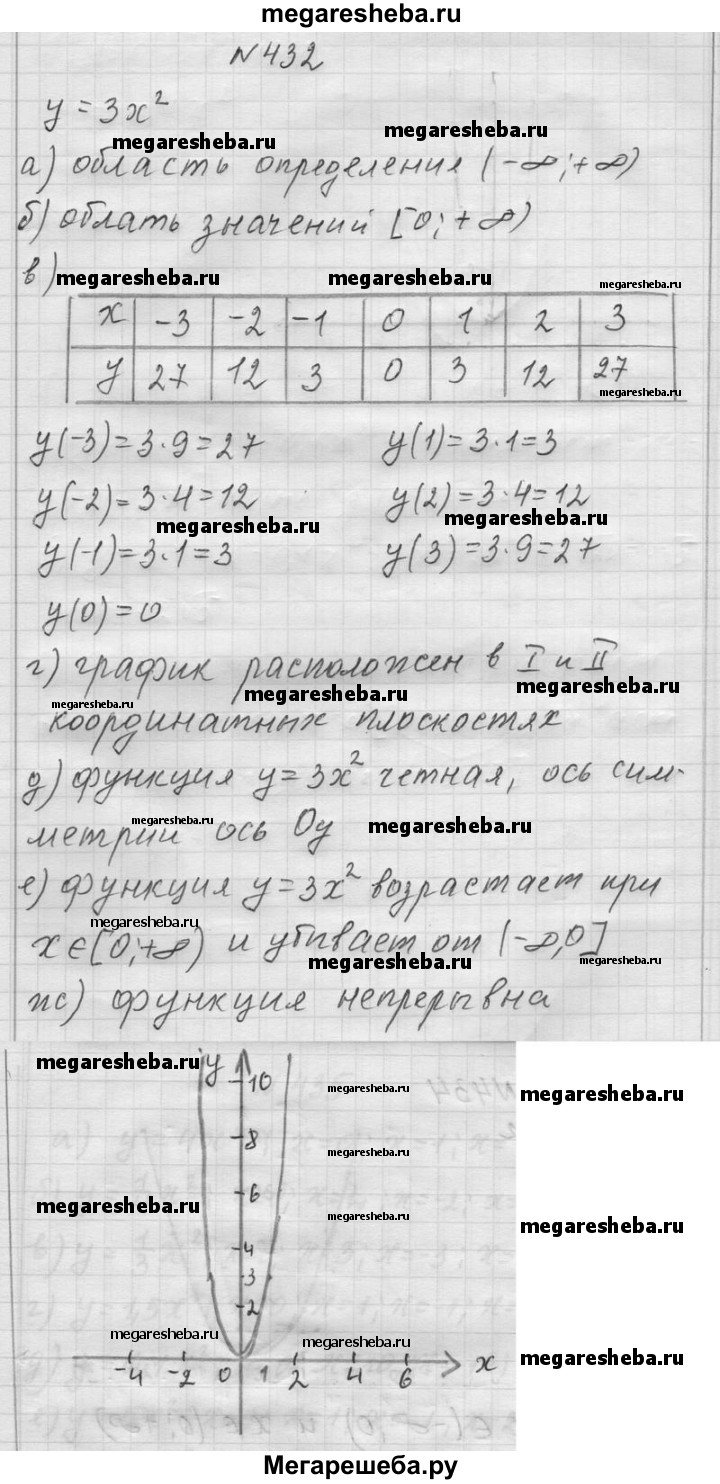 megaresheba.ru
№432
y = 3x²
megaresheba.ru megaresheba.ru
а) область определения (-∞;+∞)
б) облать значений [0;+∞)
в)
megaresheba.ru megaresheba.ru megaresheba.ru
x -3 -2 -1 0 1 2 3
y 27 12 3 0 3 12 27
megaresheba.ru
y(-3)=3·9=27 y(1)=3·1=3
y(-2)=3·4=12 y(2)=3·4=12
megaresheba.ru megaresheba.ru
y(-1)=3·1=3 y(3)=3·9=27
y(0)=0
г) график расположен в I и II
megaresheba.ru megaresheba.ru megaresheba.ru
координатных плоскостях
д) функция y=3x² четная, ось сим-
megaresheba.ru megaresheba.ru
метрии ось Oy
е) функция y=3x² возрастает при
megaresheba.ru
x∈[0;+∞) и убивает от (-∞,0]
megaresheba.ru megaresheba.ru
ж) функция непрерывна
megaresheba.ru y 10 megaresheba.ru megaresheba.ru
8 megaresheba.ru
megaresheba.ru 6 megaresheba.ru megaresheba.ru
4
3
2
megaresheba.ru megaresheba.ru megaresheba.ru
-4 -2 0 1 2 4 6 x
Мегарешеба.ру